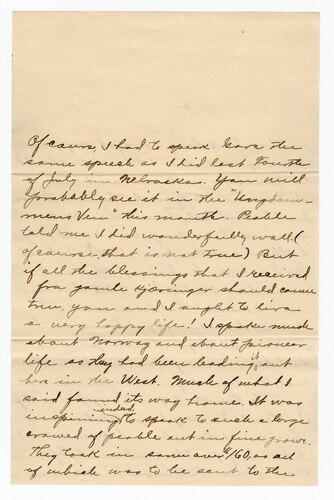 Of cours, I had to speak. Gave the
same speech as I did last Fourth
of July in Nebraska. You will
probably see it in the "Ungdom-
mens Ven" this month. People
told me I did wonderfully well. (
of course, that is not true) But
if all the blessings that I received
fra gamle kjæringer should come
true, you and I ought to live
a very happy life! I spoke much
about Norway and about pioneer
life as they had been leading it out
here in the West. Much of what I
said found its way home. It was
inspiring indeed to speak to such a large
crowd of people out in
They took in some over $160, as all
of which was to be sent to the